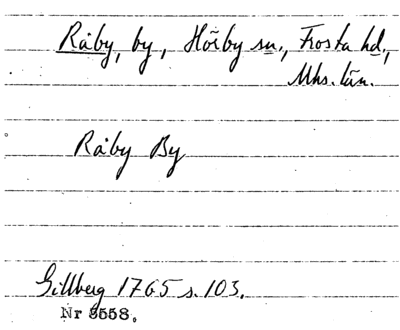 Råby, by, Hörby sn., Frosta hd,
Mhs. län.
Råby By
Gillberg 1765 s. 103.
Nr 3558.